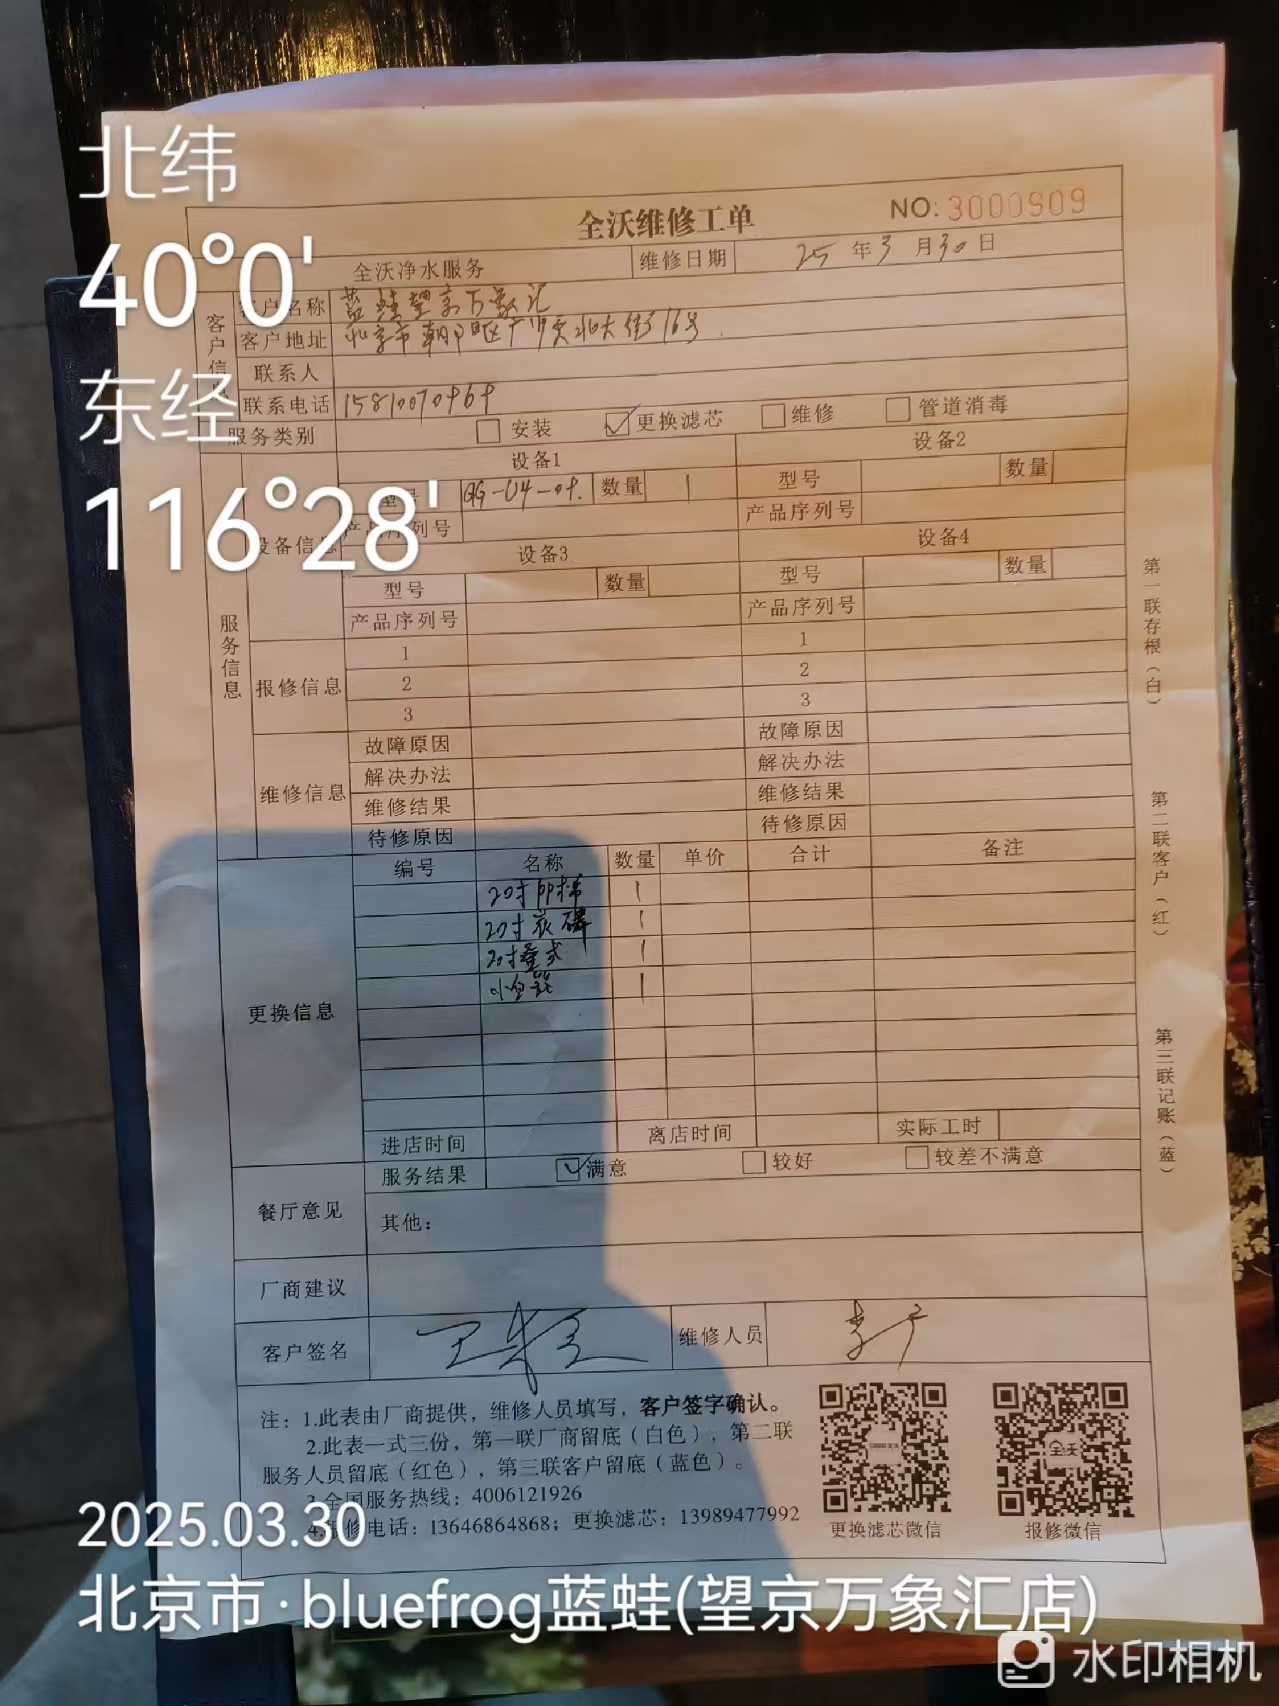 北纬
40°0'
东经
116°28'
全沃维修工单
NO: 3000909
全沃净水服务 维修日期 25 年 3 月 30 日
客户信
客户名称 蓝蛙望京万象汇
客户地址 北京市朝阳区广顺北大街16号
联系人
联系电话
服务类别 安装 ☑ 更换滤芯 维修 管道消毒
服务信息
设备信息
设备1 设备2
型号 数量 1 型号 数量
产品序列号 产品序列号
设备3 设备4
型号 数量 型号 数量
产品序列号 产品序列号
报修信息
1 1
2 2
3 3
维修信息
故障原因 故障原因
解决办法 解决办法
维修结果 维修结果
待修原因 待修原因
更换信息
编号 名称 数量 单价 合计 备注
20寸PP棉 1
20寸 1
20寸叠式 1
1
进店时间 离店时间 实际工时
餐厅意见
服务结果 ☑ 满意 较好 较差不满意
其他：
厂商建议
客户签名 维修人员
注：1.此表由厂商提供，维修人员填写，客户签字确认。
2.此表一式三份，第一联厂商留底（白色），第二联
服务人员留底（红色），第三联客户留底（蓝色）。
3.全国服务热线：4006121926
4.报修电话：13646864868；更换滤芯：13989477992
全沃
更换滤芯微信 报修微信
第一联存根（白）
第二联客户（红）
第三联记账（蓝）
2025.03.30
北京市·bluefrog蓝蛙(望京万象汇店)
水印相机